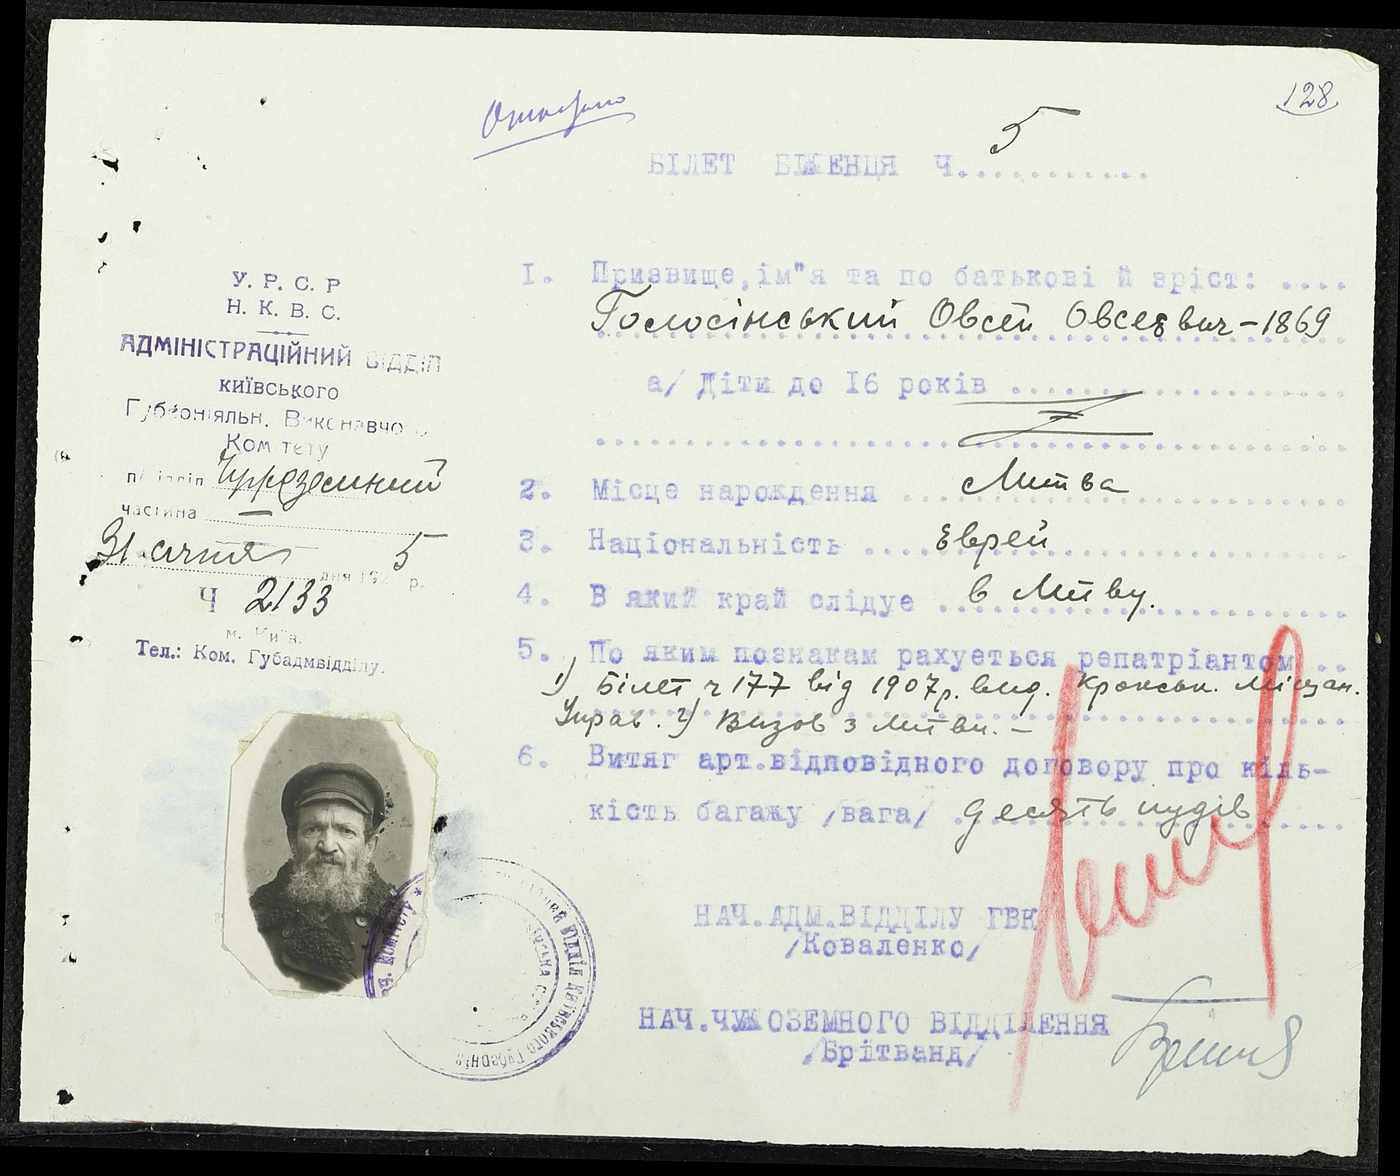 128
БІЛЕТ БІЖЕНЦЯ Ч. 5
У. Р. С. Р
Н. К. В. С.
АДМІНІСТРАЦІЙНИЙ ВІДДІЛ
КИЇВСЬКОГО
Губерніяльн. Виконавчого
Комітету
підвідділ
частина —
31 січня дня 1925 р.
Ч 2133
м. Київ.
Тел.: Ком. Губадмвідділу.
1. Призвище, ім"я та по батькові й зріст: ....
Голосінський Овсей Овсеевич – 1869
а/ Діти до 16 років
2. Місце народження Литва
3. Національність Еврей
4. В який край слідує в Литву.
5. По яким познакам рахуеться репатріантом
1) Білет ч 177 від 1907 р. вид. Крокськ. Міщан.
Управ. 2) Визов з Литви. –
6. Витяг арт. відповідного договору про кіль-
кість багажу /вага/ десять пудів
НАЧ.АДМ.ВІДДІЛУ ГВК
/Коваленко/
НАЧ.ЧУЖОЗЕМНОГО ВІДДІЛЕННЯ
/Брітванд/